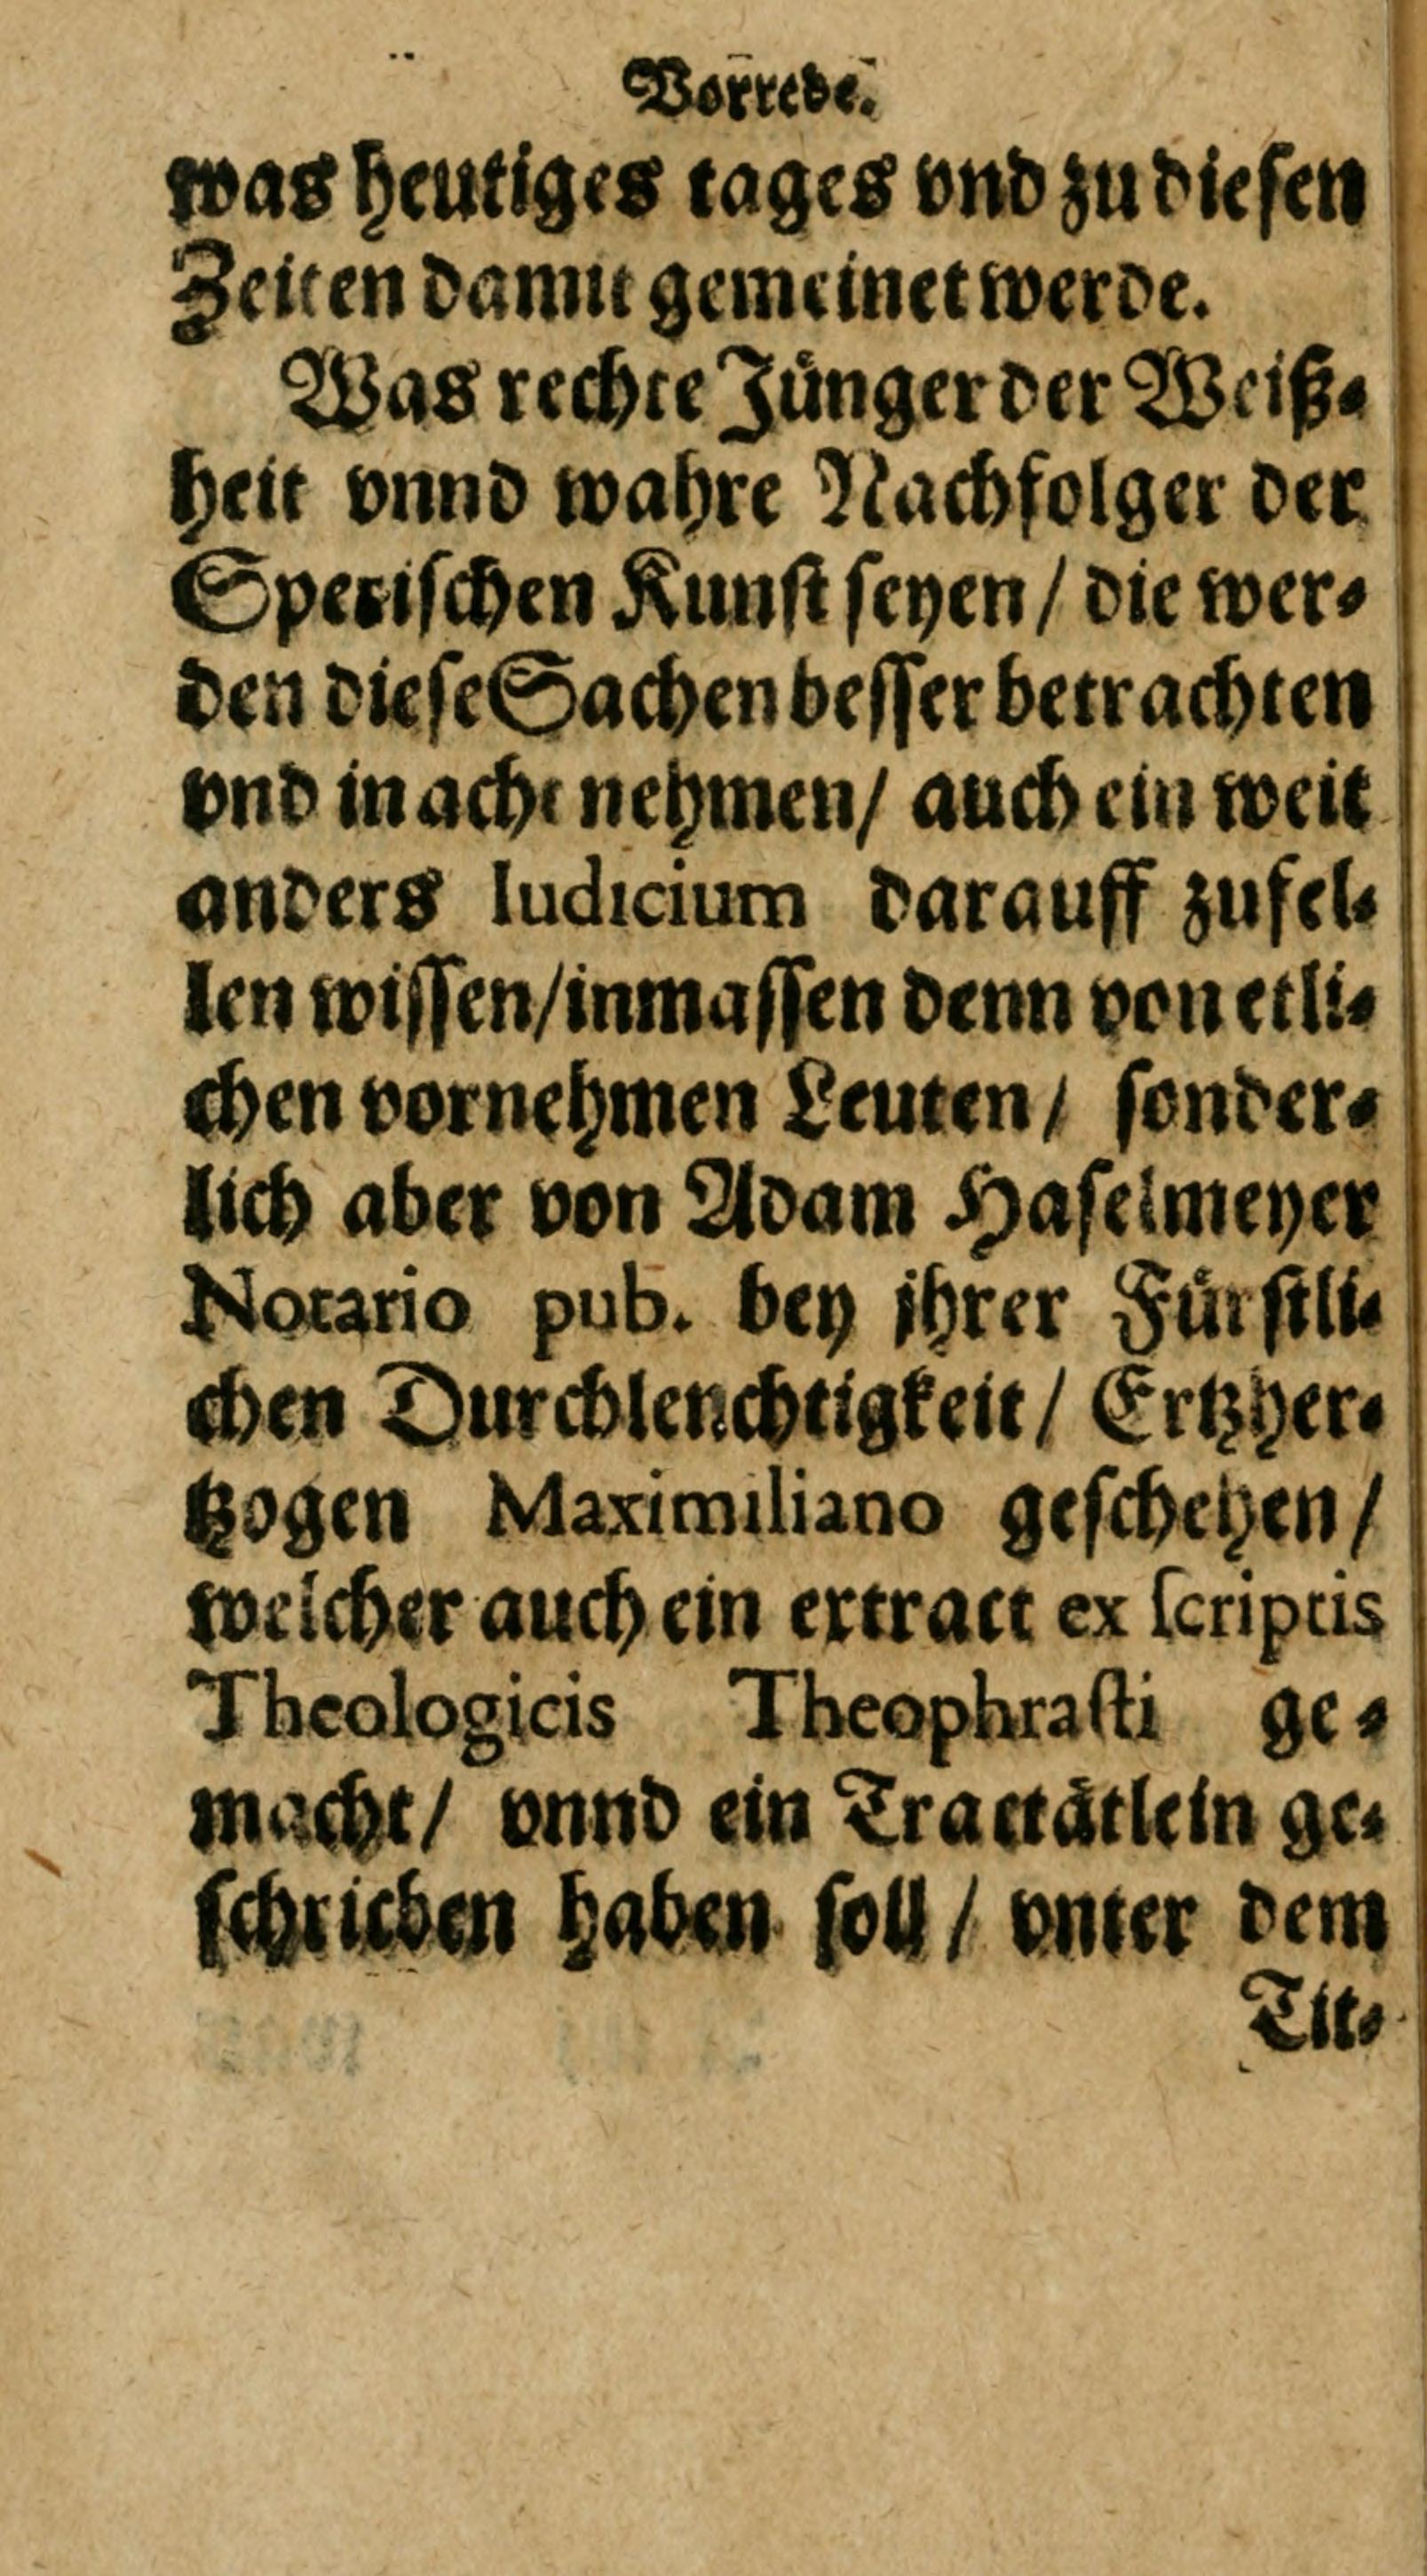 Vorrede.
was heutiges tages vnd zu diesen
Zeiten damit gemeinet werde.
Was rechte Jünger der Weiß-
heit vnnd wahre Nachfolger der
Sperischen Kunst seyen / die wer-
den diese Sachen besser betrachten
vnd in acht nehmen / auch ein weit
anders Iudicium darauff zufel-
len wissen / inmassen denn von etli-
chen vornehmen Leuten / sonder-
lich aber von Adam Haselmeyer
Notario pub. bey jhrer Fürstli-
chen Durchlenchtigkeit / Ertzher-
tzogen Maximiliano geschehen /
welcher auch ein extract ex scriptis
Theologicis Theophrasti ge-
macht / vnnd ein Tractätlein ge-
schrieben haben soll / vnter dem
Tit-